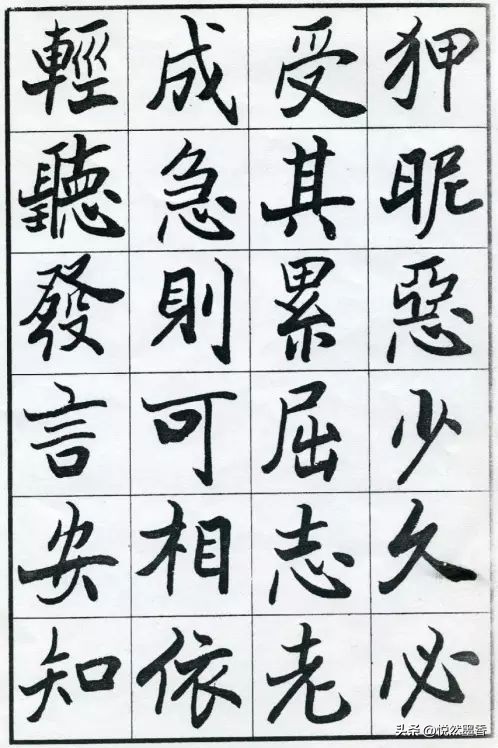 狎昵惡少久必
受其累屈志老
成急則可相依
輕聽發言安知
头条 @悦然墨香